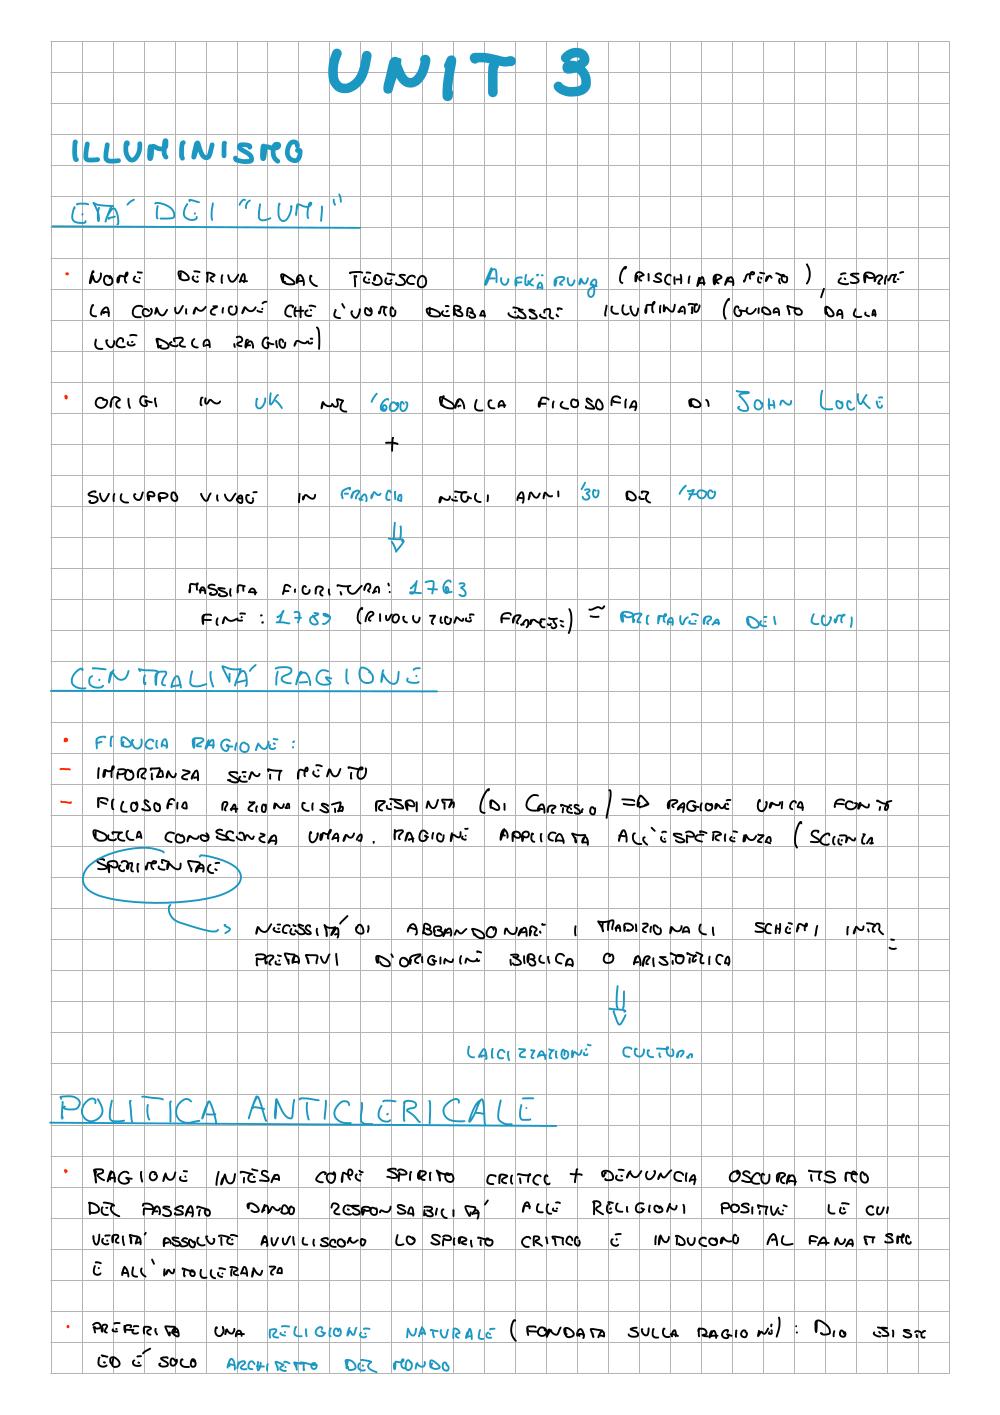 UNIT 3
ILLUMINISMO
ETA' DEI "LUMI"
• NOME DERIVA DAL TEDESCO AUFKÄRUNG (RISCHIARAMENTO), ESPRIME
LA CONVINZIONE CHE L'UOMO DEBBA ESSERE ILLUMINATO (GUIDATO DALLA
LUCE DELLA RAGIONE)
• ORIGI IN UK NEL '600 DALLA FILOSOFIA DI JOHN LOCKE
+
SVILUPPO VIVACE IN FRANCIA NEGLI ANNI '30 DEL '700
⇓
MASSIMA FIORITURA: 1763
FINE: 1789 (RIVOLUZIONE FRANCESE) = PRIMAVERA DEI LUMI
CENTRALITA' RAGIONE
• FIDUCIA RAGIONE:
- IMPORTANZA SENTIMENTO
- FILOSOFIA RAZIONALISTA RESPINTA (DI CARTESIO) => RAGIONE UNICA FONTE
DELLA CONOSCENZA UMANA. RAGIONE APPLICATA ALL'ESPERIENZA (SCIENZA
SPERIMENTALE
→ NECESSITA' DI ABBANDONARE I TRADIZIONALI SCHEMI INTER=
PRETATIVI D'ORIGINE BIBLICA O ARISTOTELICA
⇓
LAICIZZAZIONE CULTURA
POLITICA ANTICLERICALE
• RAGIONE INTESA COME SPIRITO CRITICO + DENUNCIA OSCURATISMO
DEL PASSATO DANDO RESPONSABILITA' ALLE RELIGIONI POSITIVE LE CUI
VERITA' ASSOLUTE AVVILISCONO LO SPIRITO CRITICO E INDUCONO AL FANATISMO
E ALL'INTOLLERANZA
• PREFERITA UNA RELIGIONE NATURALE (FONDATA SULLA RAGIONE): DIO ESISTE
ED É SOLO ARCHITETTO DEL MONDO